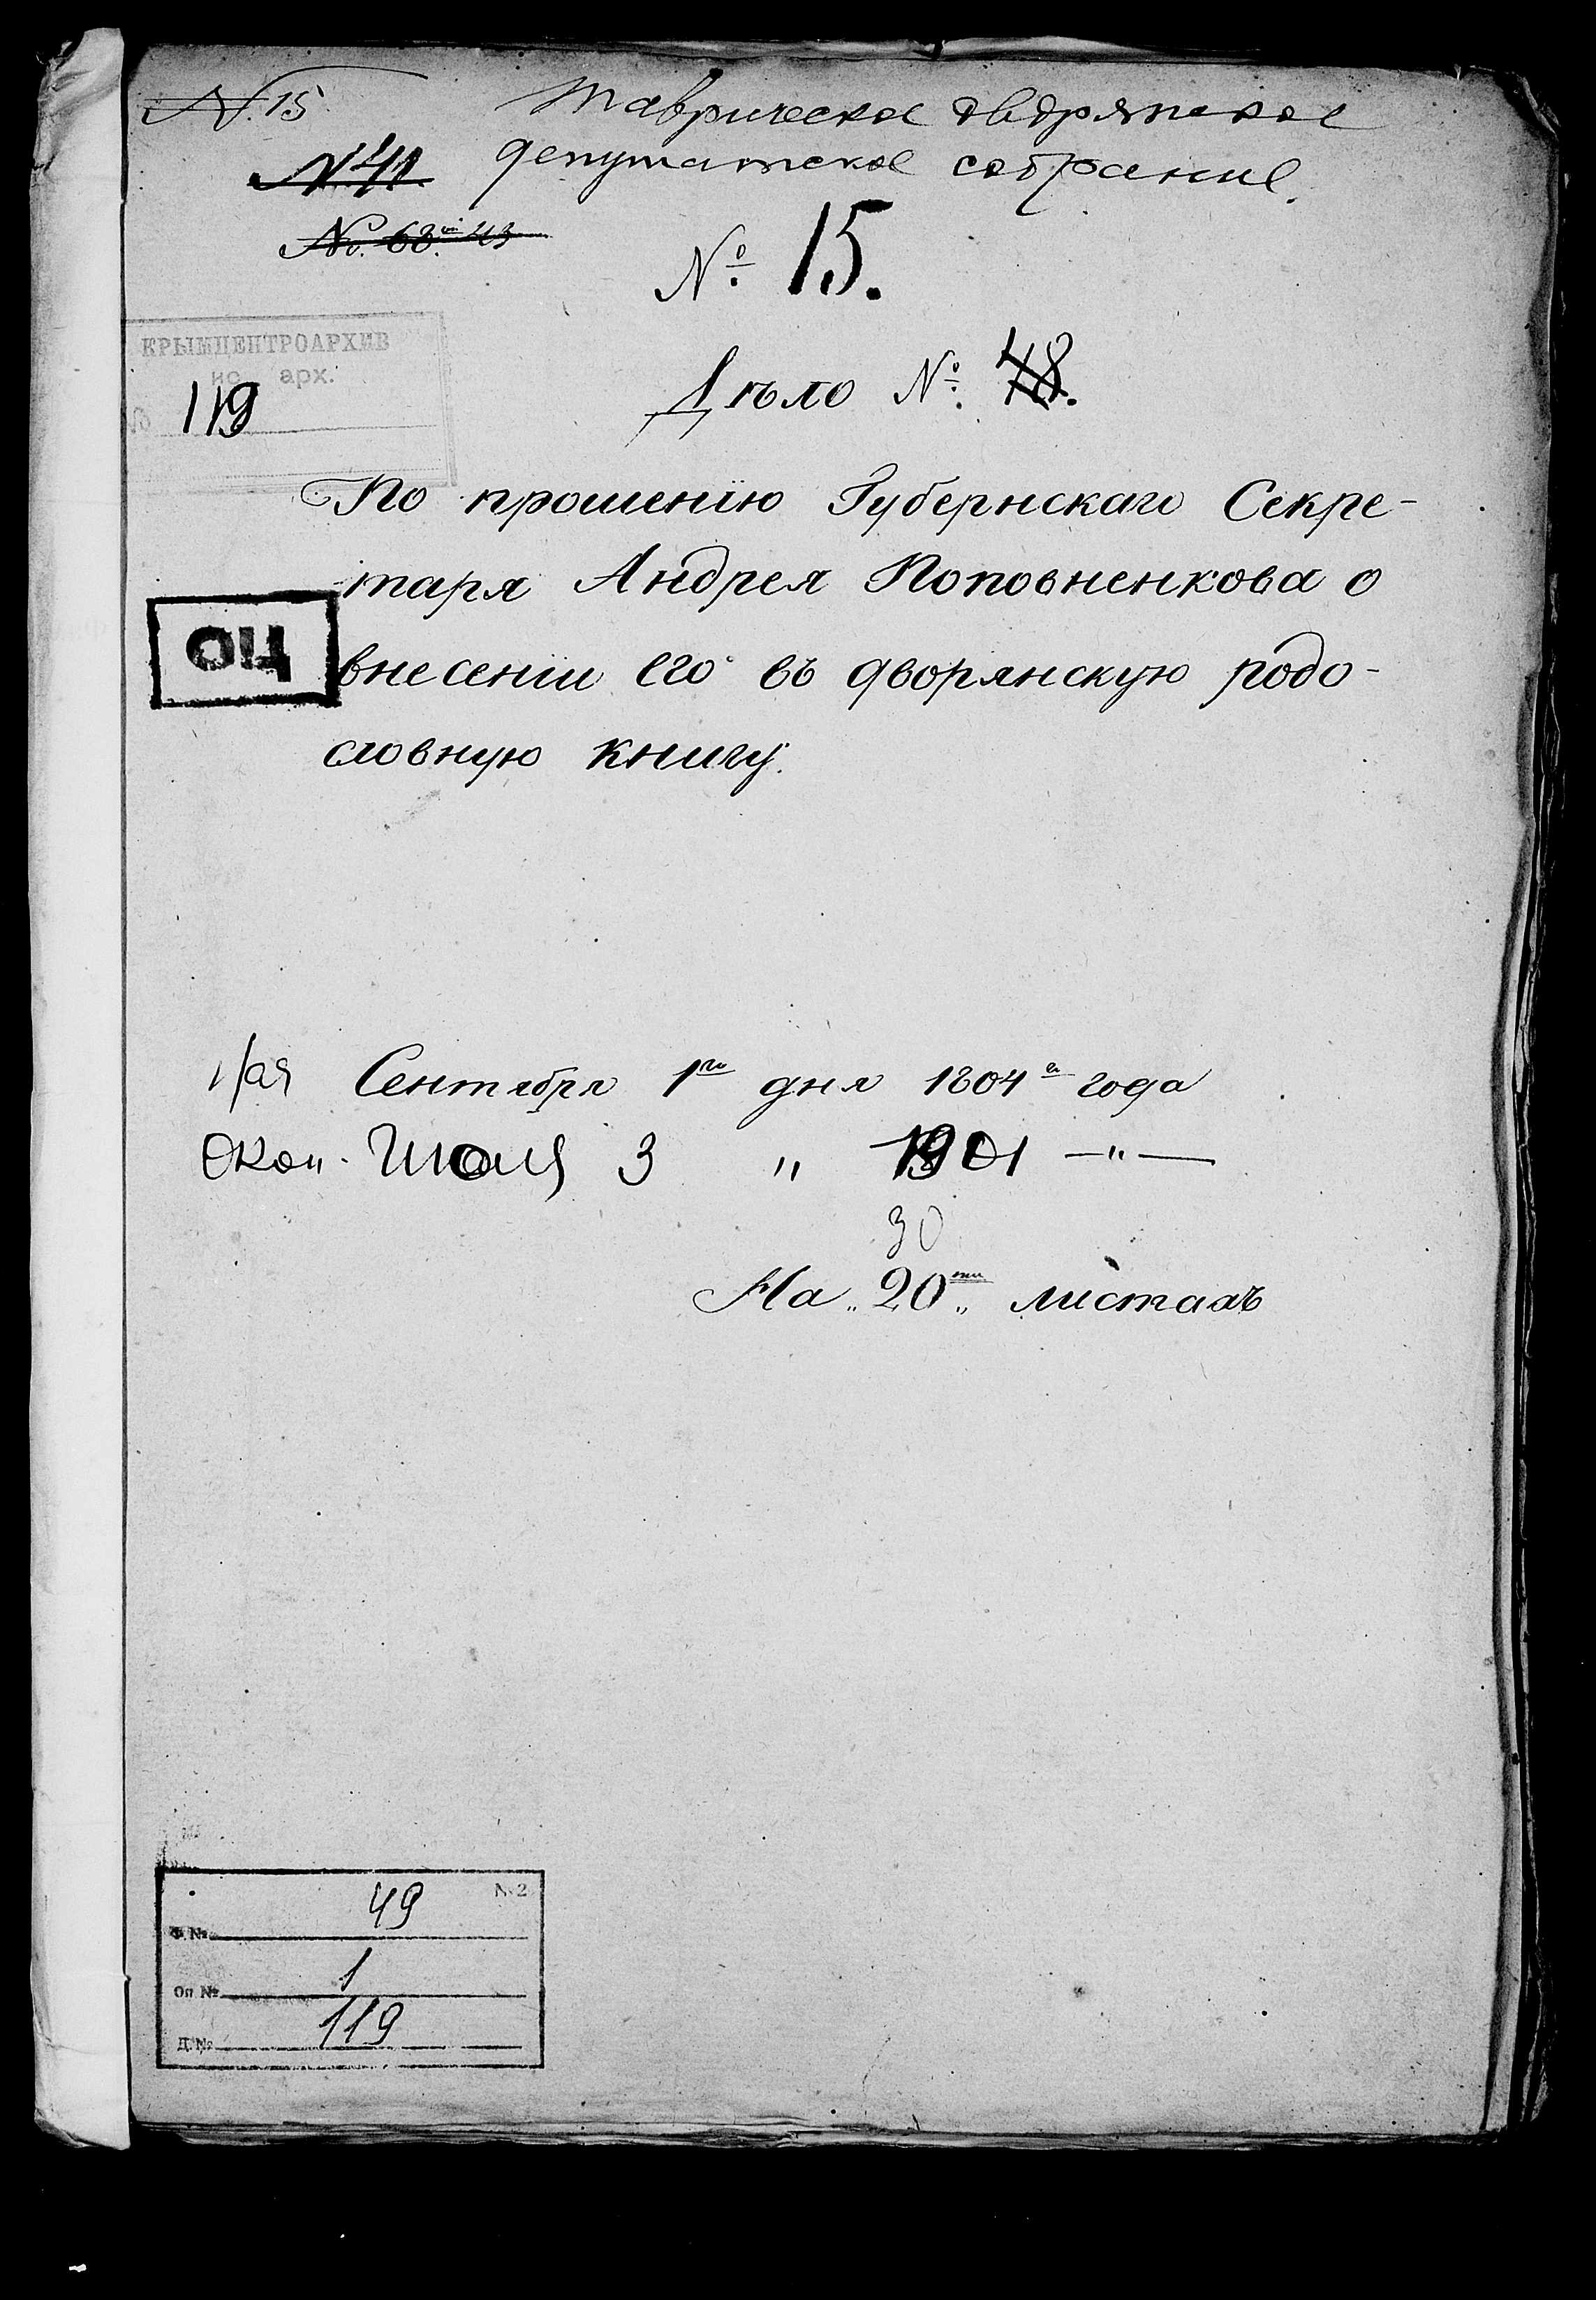 N. 15
Таврическое дворянское
N 41 депутатское собрание.
No. 68. 43
№ 15.
КРЫМЦЕНТРОАРХИВ
арх.
119
Дѣло № 48.
По прошенію Губернскаго Секре-
таря Андрея Поповненкова о
ОЦ
внесеніи его въ дворянскую родо-
словную книгу.
Сентября 1го дня 1804 года
Окон. Июля 3 " 1901 —"—
30
На „20ти„ листахъ
№ 2
Ф. № 49
Оп № 1
Д. № 119